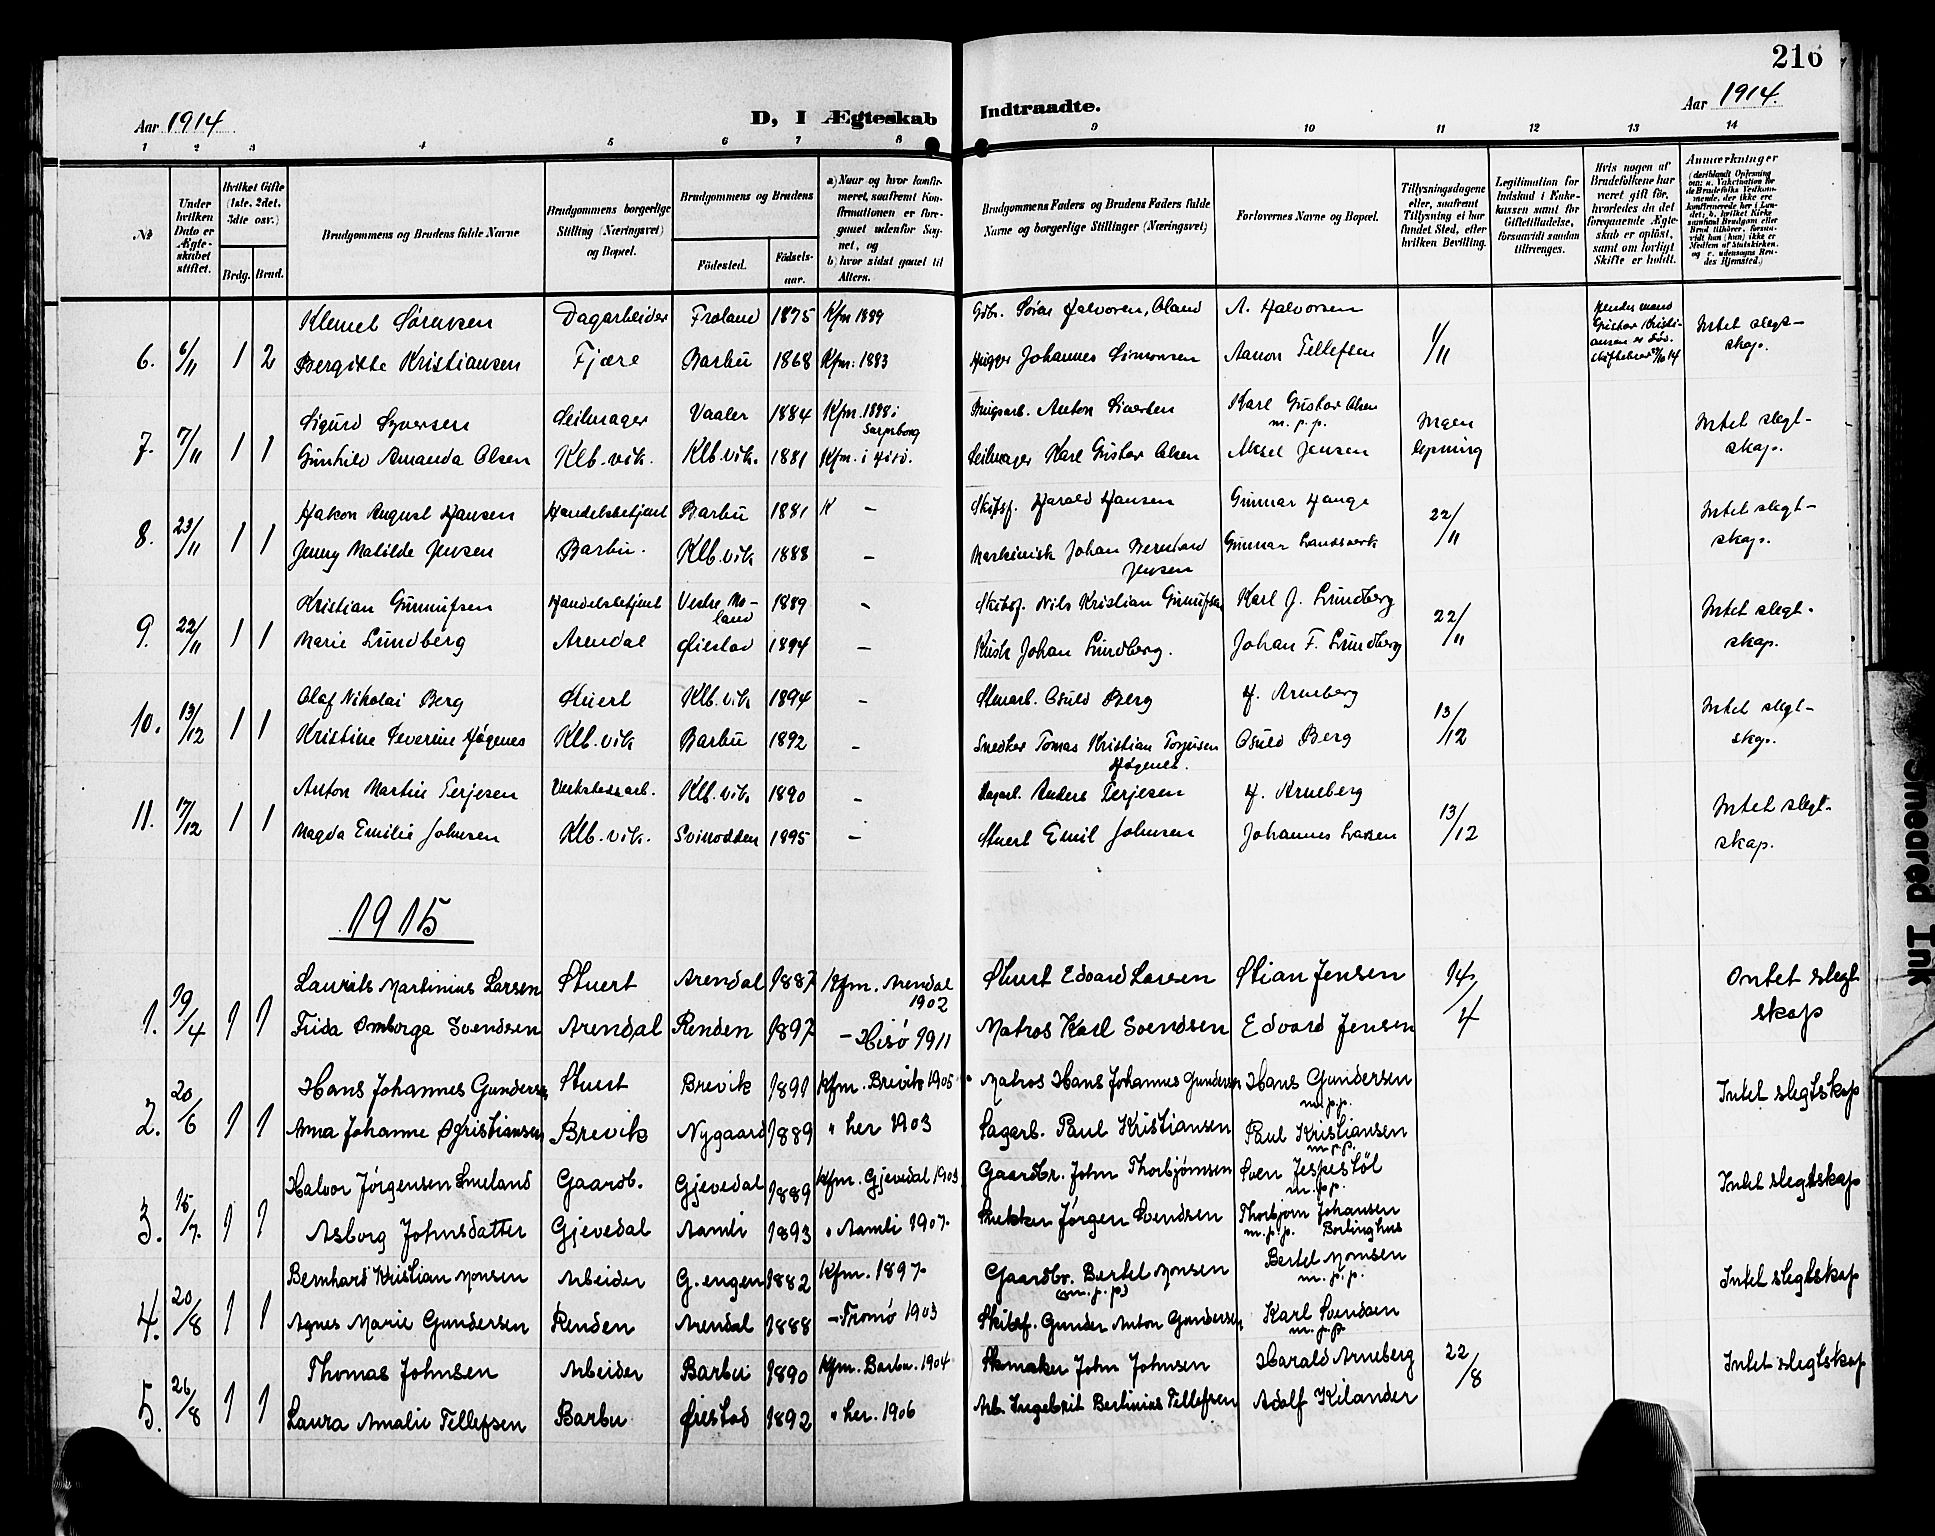 216
Aar 1914
D, I Ægteskab
Indtraadte.
Aar 1914.
1 2 3 4 5 6 7 8 9 10 11 12 13 14
№
Under hvilken Dato er Ægteskabet stiftet.
Hvilket Gifte (1ste, 2det, 3die osv.)
Brdg. Brud.
Brudgommens og Brudens fulde Navne
Brudgommens borgerlige Stilling (Næringsvei) og Bopæl.
Brudgommens og Brudens
Fødested.
Fødselsaar.
a) Naar og hvor konfirmeret, saafremt Konfirmationen er foregaaet udenfor Sognet, og b) hvor sidst gaaet til Alters.
Brudgommens Faders og Brudens Faders fulde Navne og borgerlige Stillinger (Næringsvei)
Forlovernes Navne og Bopæl.
Tillysningsdagene eller, saafremt Tillysning ei har fundet Sted, efter hvilken Bevilling.
Legitimation for Indskud i Enkekassen samt for Giftetilladelse, forsaavidt saadan tiltrænges.
Hvis nogen af Brudefolkene har været gift før, hvorledes da det foregaaende Ægteskab er opløst, samt om lovligt Skifte er holdt.
Anmærkninger
(deriblandt Oplysning om: a. Vakcination for de Brudefolks Vedkommende, der ikke ere konfirmerede her i Landet; b. hvilket Kirkesamfund Brudgom eller Brud tilhører, forsaavidt han (hun) ikke er Medlem af Statskirken, og c. udensogns Brudes Hjemsted.)
Klemet Sørensen Dagarbeider Froland 1875 Kfm 1889 Gdbr. Søren Halvorsen, Øland A. Halvorsen
6. 6/11 1 2 Bergitte Kristiansen Fjære Barbu 1868 Kfm. 1883 Johannes Simonsen Aanon Tellefsen 1/11 Intet slegtskap.
Sigurd Syversen Seilmager Vaaler 1884 Kfm. 1898 i Sarpsborg Anton Siversen Karl Gustav Olsen m.p.p.
7. 7/11 1 1 Gunhild Amanda Olsen Klb.vik. Klb.vik. 1881 Kfm. i Hisø. Seilmager Karl Gustav Olsen Aksel Jensen Ingen lysning Intet slegtskap.
Hakon August Hansen Handelsbetjent Barbu 1881 K – Skibsf. Harald Hansen Gunnar Hauge
8. 23/11 1 1 Jenny Matilde Jensen Barbu. Klb.vik 1888 – Maskinist Johan Bernhard Jensen Gunnar Landsverk 22/11 Intet slegtskap.
Kristian Gunnufsen Handelsbetjent Vestre Moland 1889 – Skibsf. Nils Kristian Gunnufsen Karl J. Lundberg
9. 22/11 1 1 Marie Lundberg Arendal Øiestad 1894 – Kusk Johan Lundberg. Johan F. Lundberg 22/11 Intet slegtskap.
Olaf Nikolai Berg Stuert Klb.vik 1894 – Osuld Berg H. Arneberg
10. 13/12 1 1 Kristine Severine Høgenes Klb.vik Barbu 1892 – Snedker Tomas Kristian Torjusen Høgenes. Osuld Berg 13/12 Intet slegtskap.
Anton Martin Terjesen Verkstedsarb. Klb.vik. 1890 – Dagarb. Anders Terjesen H. Arneberg
11. 17/12 1 1 Magda Emilie Johnsen Klb.vik. Svinodden 1895 – Stuert Emil Johnsen Johannes Larsen 13/12 Intet slegtskap.
1915
Laurits Martinius Larsen Stuert Arendal 1887 Kfm. Arendal 1902 Stuert Edvard Larsen Stian Jensen
1. 19/4 1 1 Frida Omborga Svendsen Arendal Renden 1897 – Hisø 1911 Matros Karl Svendsen Edvard Jensen 14/4 Intet slegtskap
Hans Johannes Gundersen Stuert Brevik 1891 Kfm. Brevik 1905 Matros Hans Johannes Gundersen Hans Gundersen m.p.p.
2. 20/6 1 1 Anna Johanne Kristiansen Brevik Nygaard 1889 " her 1903 Sagarb. Paul Kristiansen Paul Kristiansen m.p.p. Intet slegtskap
Halvor Jørgensen Smeland Gaardb. Gjevedal 1889 Kfm. Gjevedal 1903 Gaardbr. John Thorbjørnsen Sven Jespestøl m.p.p.
3. 15/7. 1 1 Asborg Johnsdatter Gjevedal Aamli 1893 " Aamli 1907. Jørgen Svendsen Thorbjørn Johansen Borlinghus m.p.p. Intet slegtskap
Bernhard Kristian Monsen Arbeider G. engen 1882 Kfm. 1897. Gaardbr. Bertel Monsen (m.p.p) Bertel Monsen m.p.p.
4. 20/8 1 1 Agnes Marie Gundersen Renden Arendal 1888 – Tromø 1903 Skibsf. Gunder Anton Gundersen Karl Svendsen m.p.p. Intet slegtskap
Thomas Johnsen Arbeider Barbu 1890 Kfm. Barbu. 1904 Skomaker John Johnsen Harald Arneberg
5. 26/8 1 1 Laura Amalie Tellefsen Barbu Øiestad 1892 " her. 1906 Arb. Ingebrit Bertinius Tellefsen Adolf Kilander 22/8 Intet slegtskap
Smeared Ink